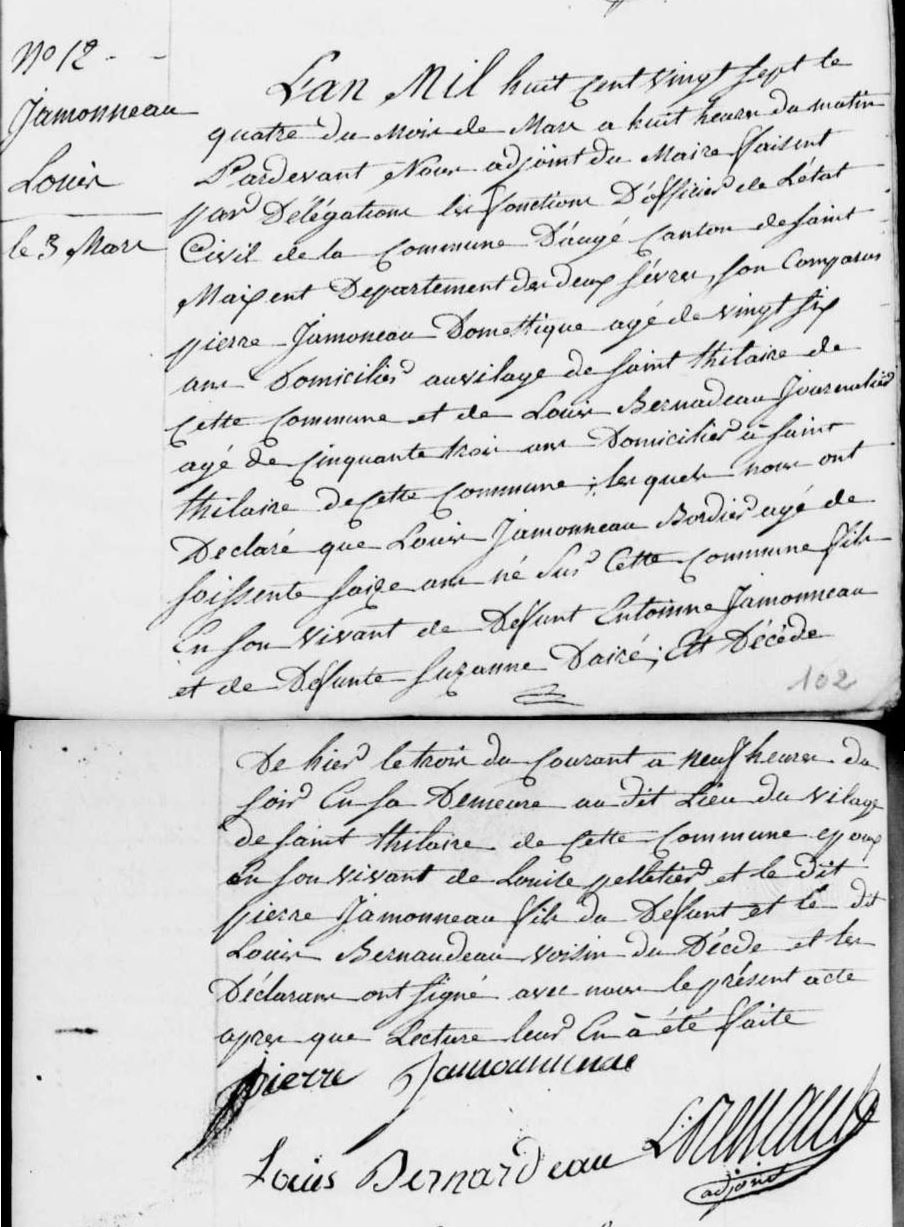 No 12
Jamonneau
Louis
le 3 Mars
L'an Mil huit Cent vingt sept le
quatre du Mois de Mars a huit heures du matin
Pardevant Nous adjoint du Maire faisent
par Délégations les fonctions D'officier de L'état
Civil de la Commune D'augé Canton de Saint
Maixent Departement des deux Sévres, son Comparus
pierre Jamoneau Domestique agé de vingt six
ans Domicilier au vilage de Saint thilaire de
Cette Commune et de Louis Bernadeau Journalier
agé de Cinquante trois ans Domicilier à Saint
thilaire de Cette Commune ; les quels nous ont
Declaré que Louis Jamonneau Bordier agé de
soissente saize ans né Sur Cette Commune fils
En son vivant de Defunt Entoinne Jamonneau
et de Defunte Suzanne Dairé, Est Décéde
102
De hier le trois du Courant a neuf heures du
soir En sa Demeure au dit Lieu du vilage
de Saint thilaire de Cette Commune epoux
En son vivant de Louise pelletier et le dit
pierre Jamonneau fils du Defunt et le dit
Louis Bernaudeau voisin du Décde et les
Déclarans ont signé avec nous le présent acte
apres que Lecture leur En à été faite
pierre
Louis Bernardeau
adjoint